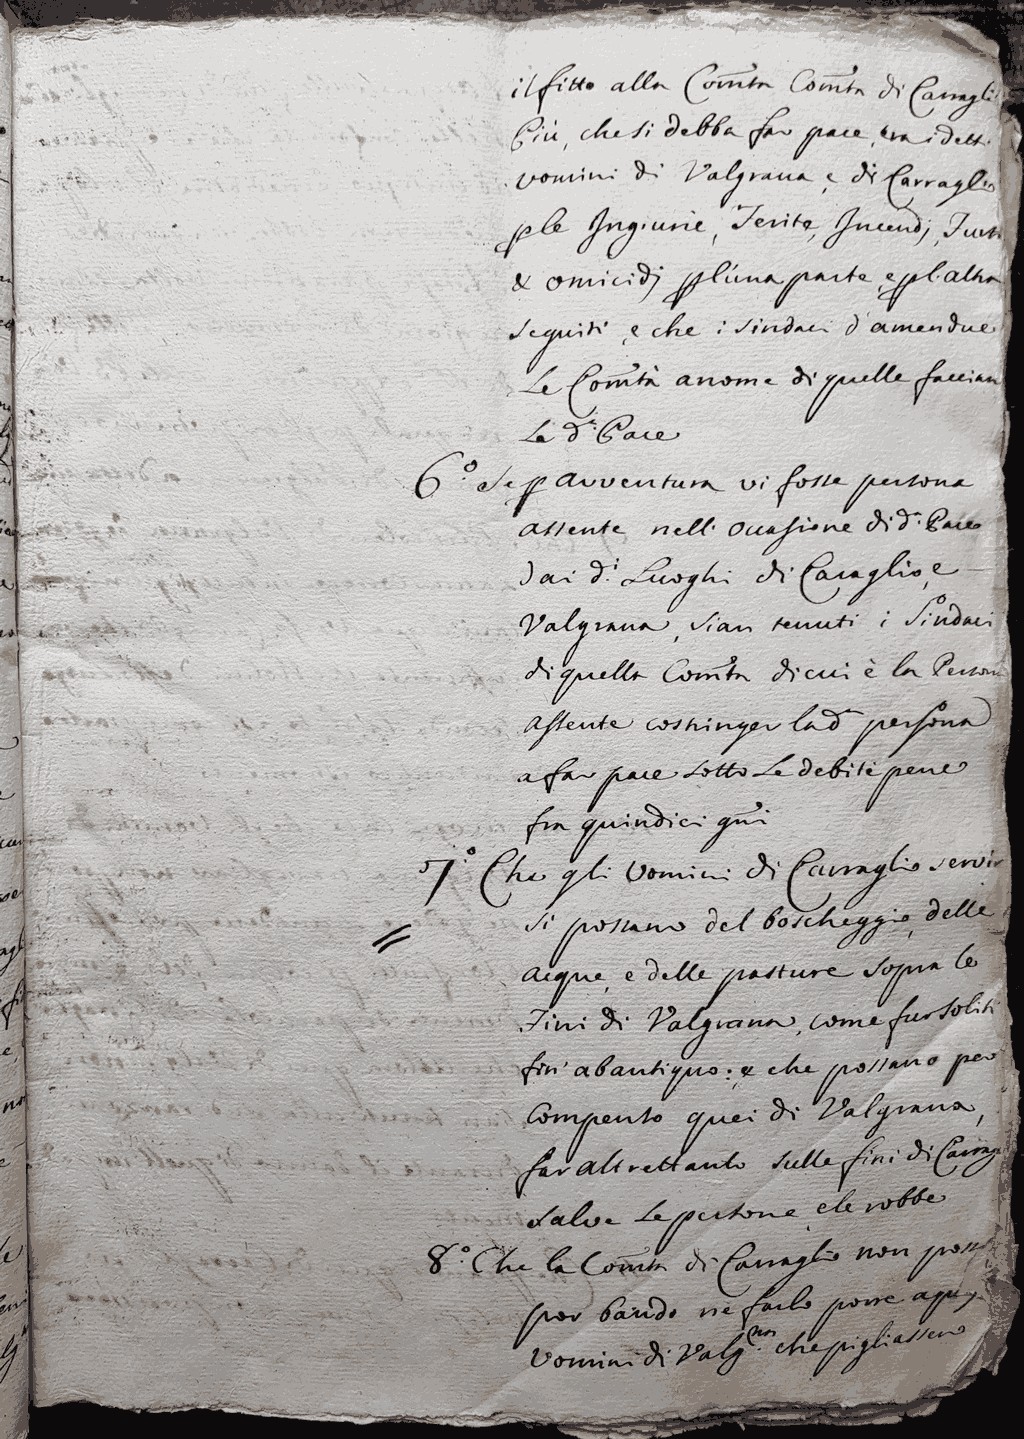 il fitto alla Com̃tà Com̃tà di Carragli
Più, che si debba far pace, tra i detti
uomini di Valgrana, e di Carraglio
ple Ingiurie, Ferite, Incendj, Furti
& omicidj pl'una parte, e pl'altra
seguiti, e che i sindaci d'amendue
Le Com̃tà a nome di quelle faccian
La d.ª Pace
6.º Se p avventura vi fosse persona
assente nell'ocasione di d.ª Pace
dai d.i Luoghi di Caraglio, e
Valgrana, sian tenuti i Sindaci
di quella Com̃tà di cui è la Persona
assente costringer la d.ª persona
a far pace sotto le debite pene
fra quindici gñi
7.º Che gli Uomini di Carraglio servir
si possano del boscheggio, delle
acque, e delle pasture sopra le
Fini di Valgrana, come fur soliti
fin' ab antiquo: & che possano per
Compenso quei di Valgrana,
far altrettanto sulle fini di Carrag
salve Le persone, e le robbe
8.º Che la Com̃tà di Carraglio non poss
por bando nè farlo porre a
Uomini di Valg.na che pigliassero